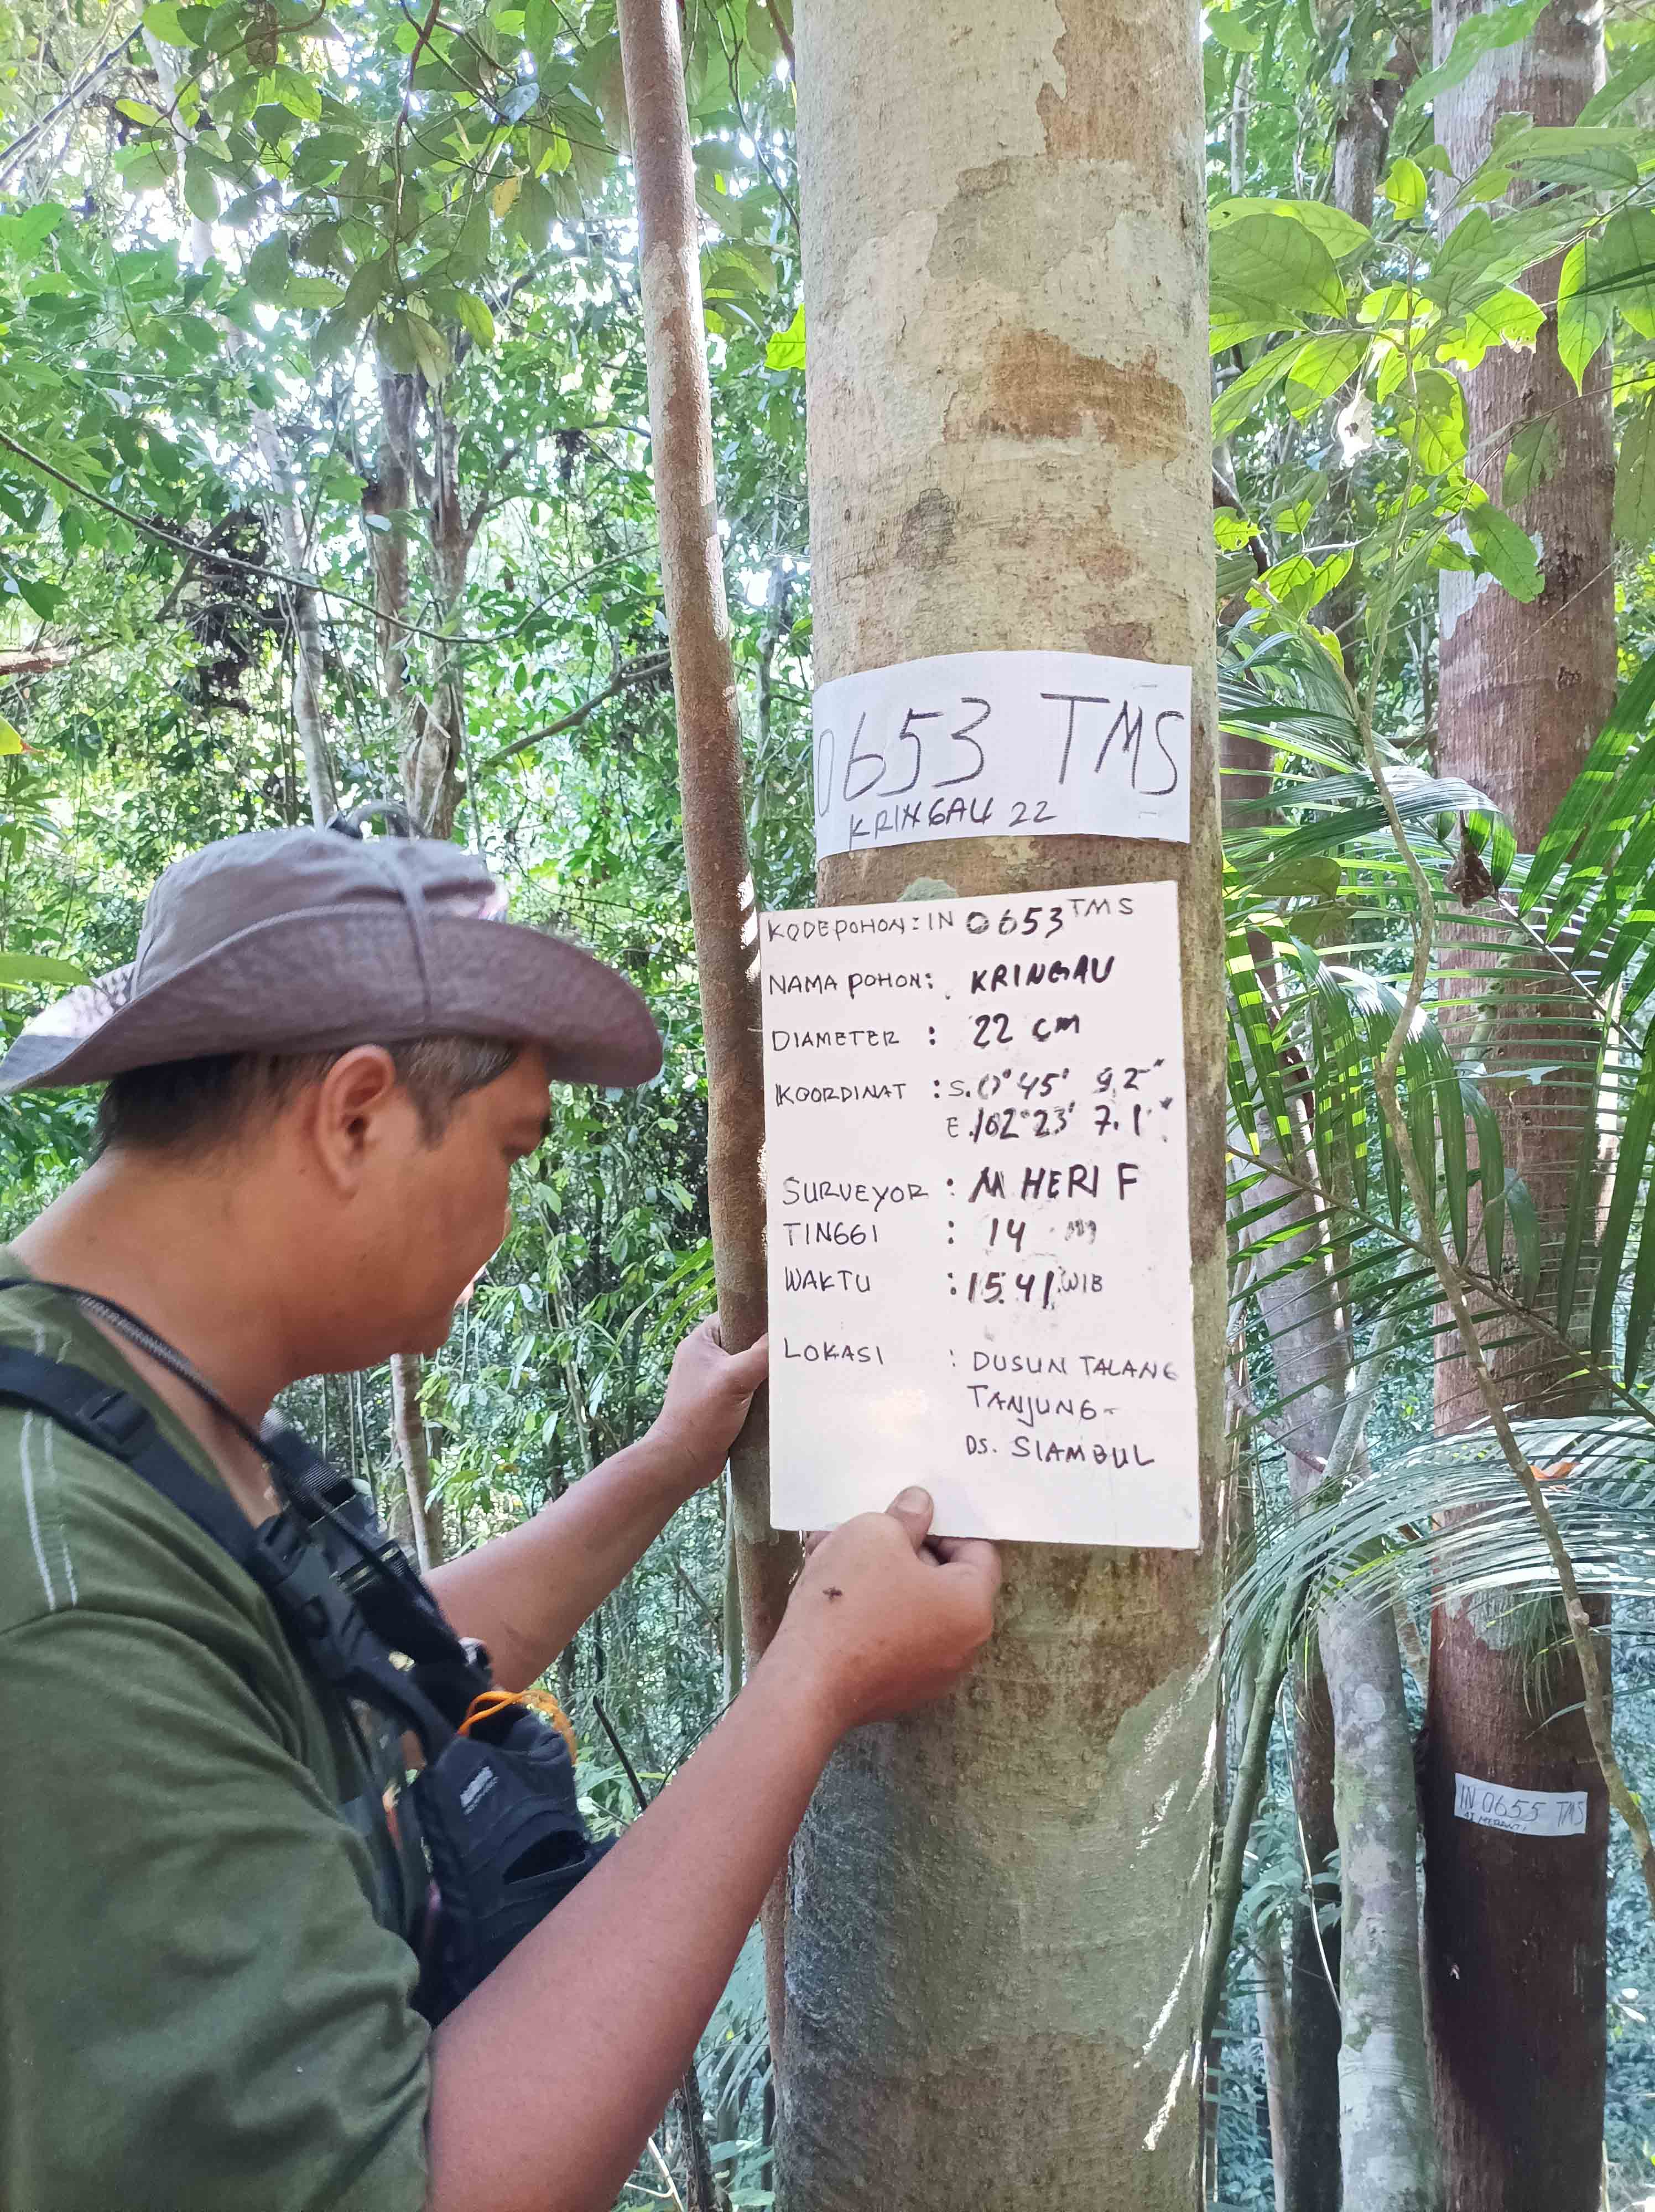 0653 TMS
KRINGAU 22
KODE POHON : IN 0653 TMS
NAMA POHON : KRINGAU
DIAMETER : 22 cm
KOORDINAT : S. 0° 45' 9.2"
E. 102° 23' 7.1"
SURVEYOR : M HERI F
TINGGI : 14 m
WAKTU : 15.41 WIB
LOKASI : DUSUN TALANG
TANJUNG -
DS. SIAMBUL
IN 0655 TMS